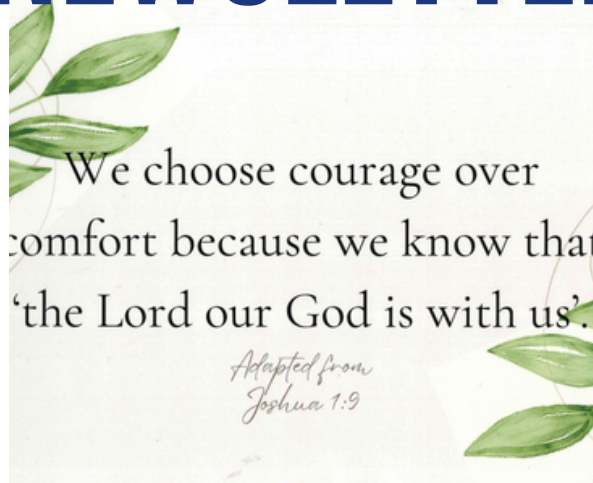 NEWSLETTE
We choose courage over
comfort because we know that
‘the Lord our God is with us’.
Adapted from
Joshua 1:9